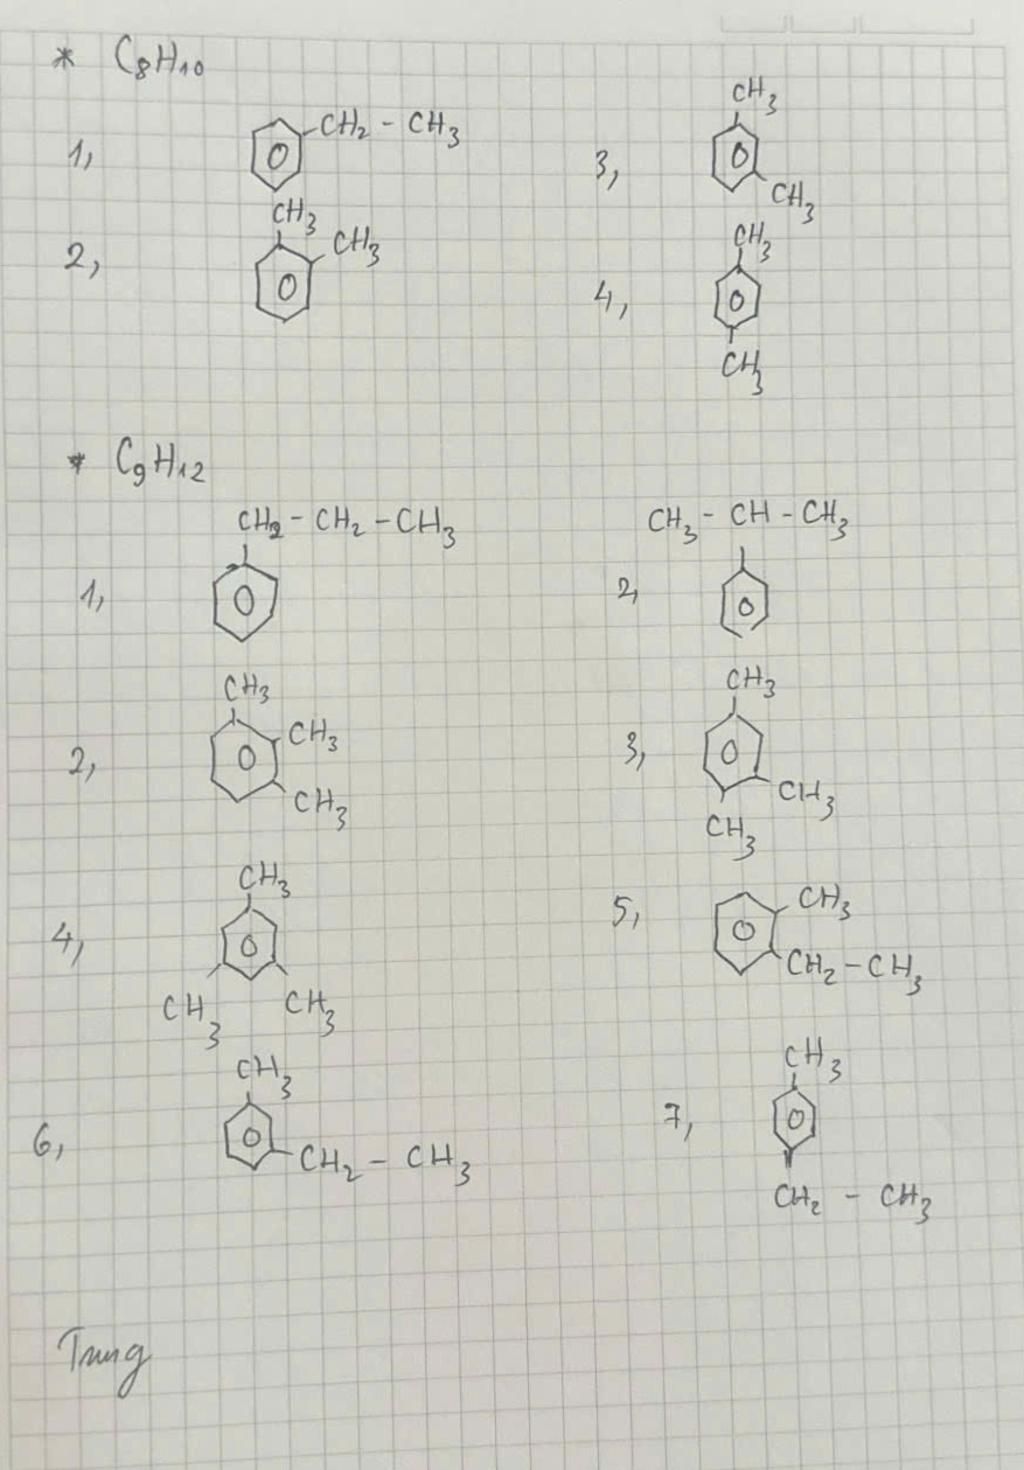 * C₈H₁₀
1, CH₂ - CH₃
3, CH₃ CH₃
2, CH₃ CH₃
4, CH₃ CH₃
* C₉H₁₂
1, CH₂ - CH₂ - CH₃
2, CH₃ - CH - CH₃
2, CH₃ CH₃ CH₃
3, CH₃ CH₃ CH₃
4, CH₃ CH₃ CH₃
5, CH₃ CH₂ - CH₃
6, CH₃ CH₂ - CH₃
7, CH₃ CH₂ - CH₃
Trung